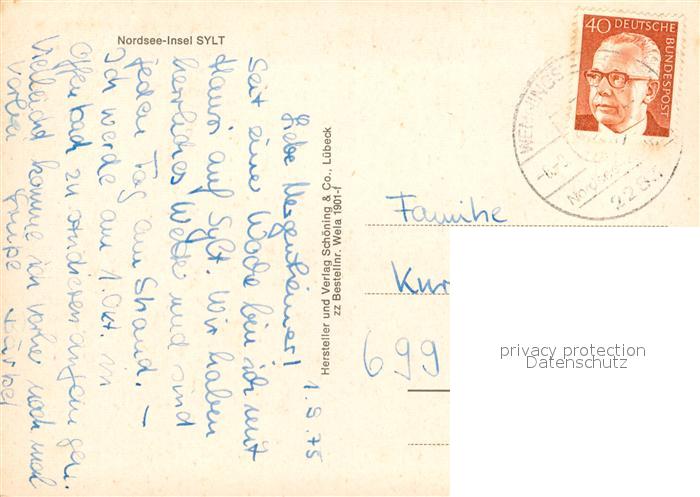 Nordsee-Insel SYLT
1.9.75
Liebe Mergentheimer!
Seit einer Woche bin ich mit
Hansi auf Sylt. Wir haben
herrliches Wetter und sind
jeden Tag am Strand. –
Ich werde am 1. Okt. in
Offenbach zu studieren anfangen.
Vielleicht komme ich vorher noch mal
vorbei
Hersteller und Verlag Schöning & Co., Lübeck
zz Bestellnr. Wela 1901-f
40 DEUTSCHE
BUNDESPOST
228
Familie
Kur
699
privacy protection
Datenschutz